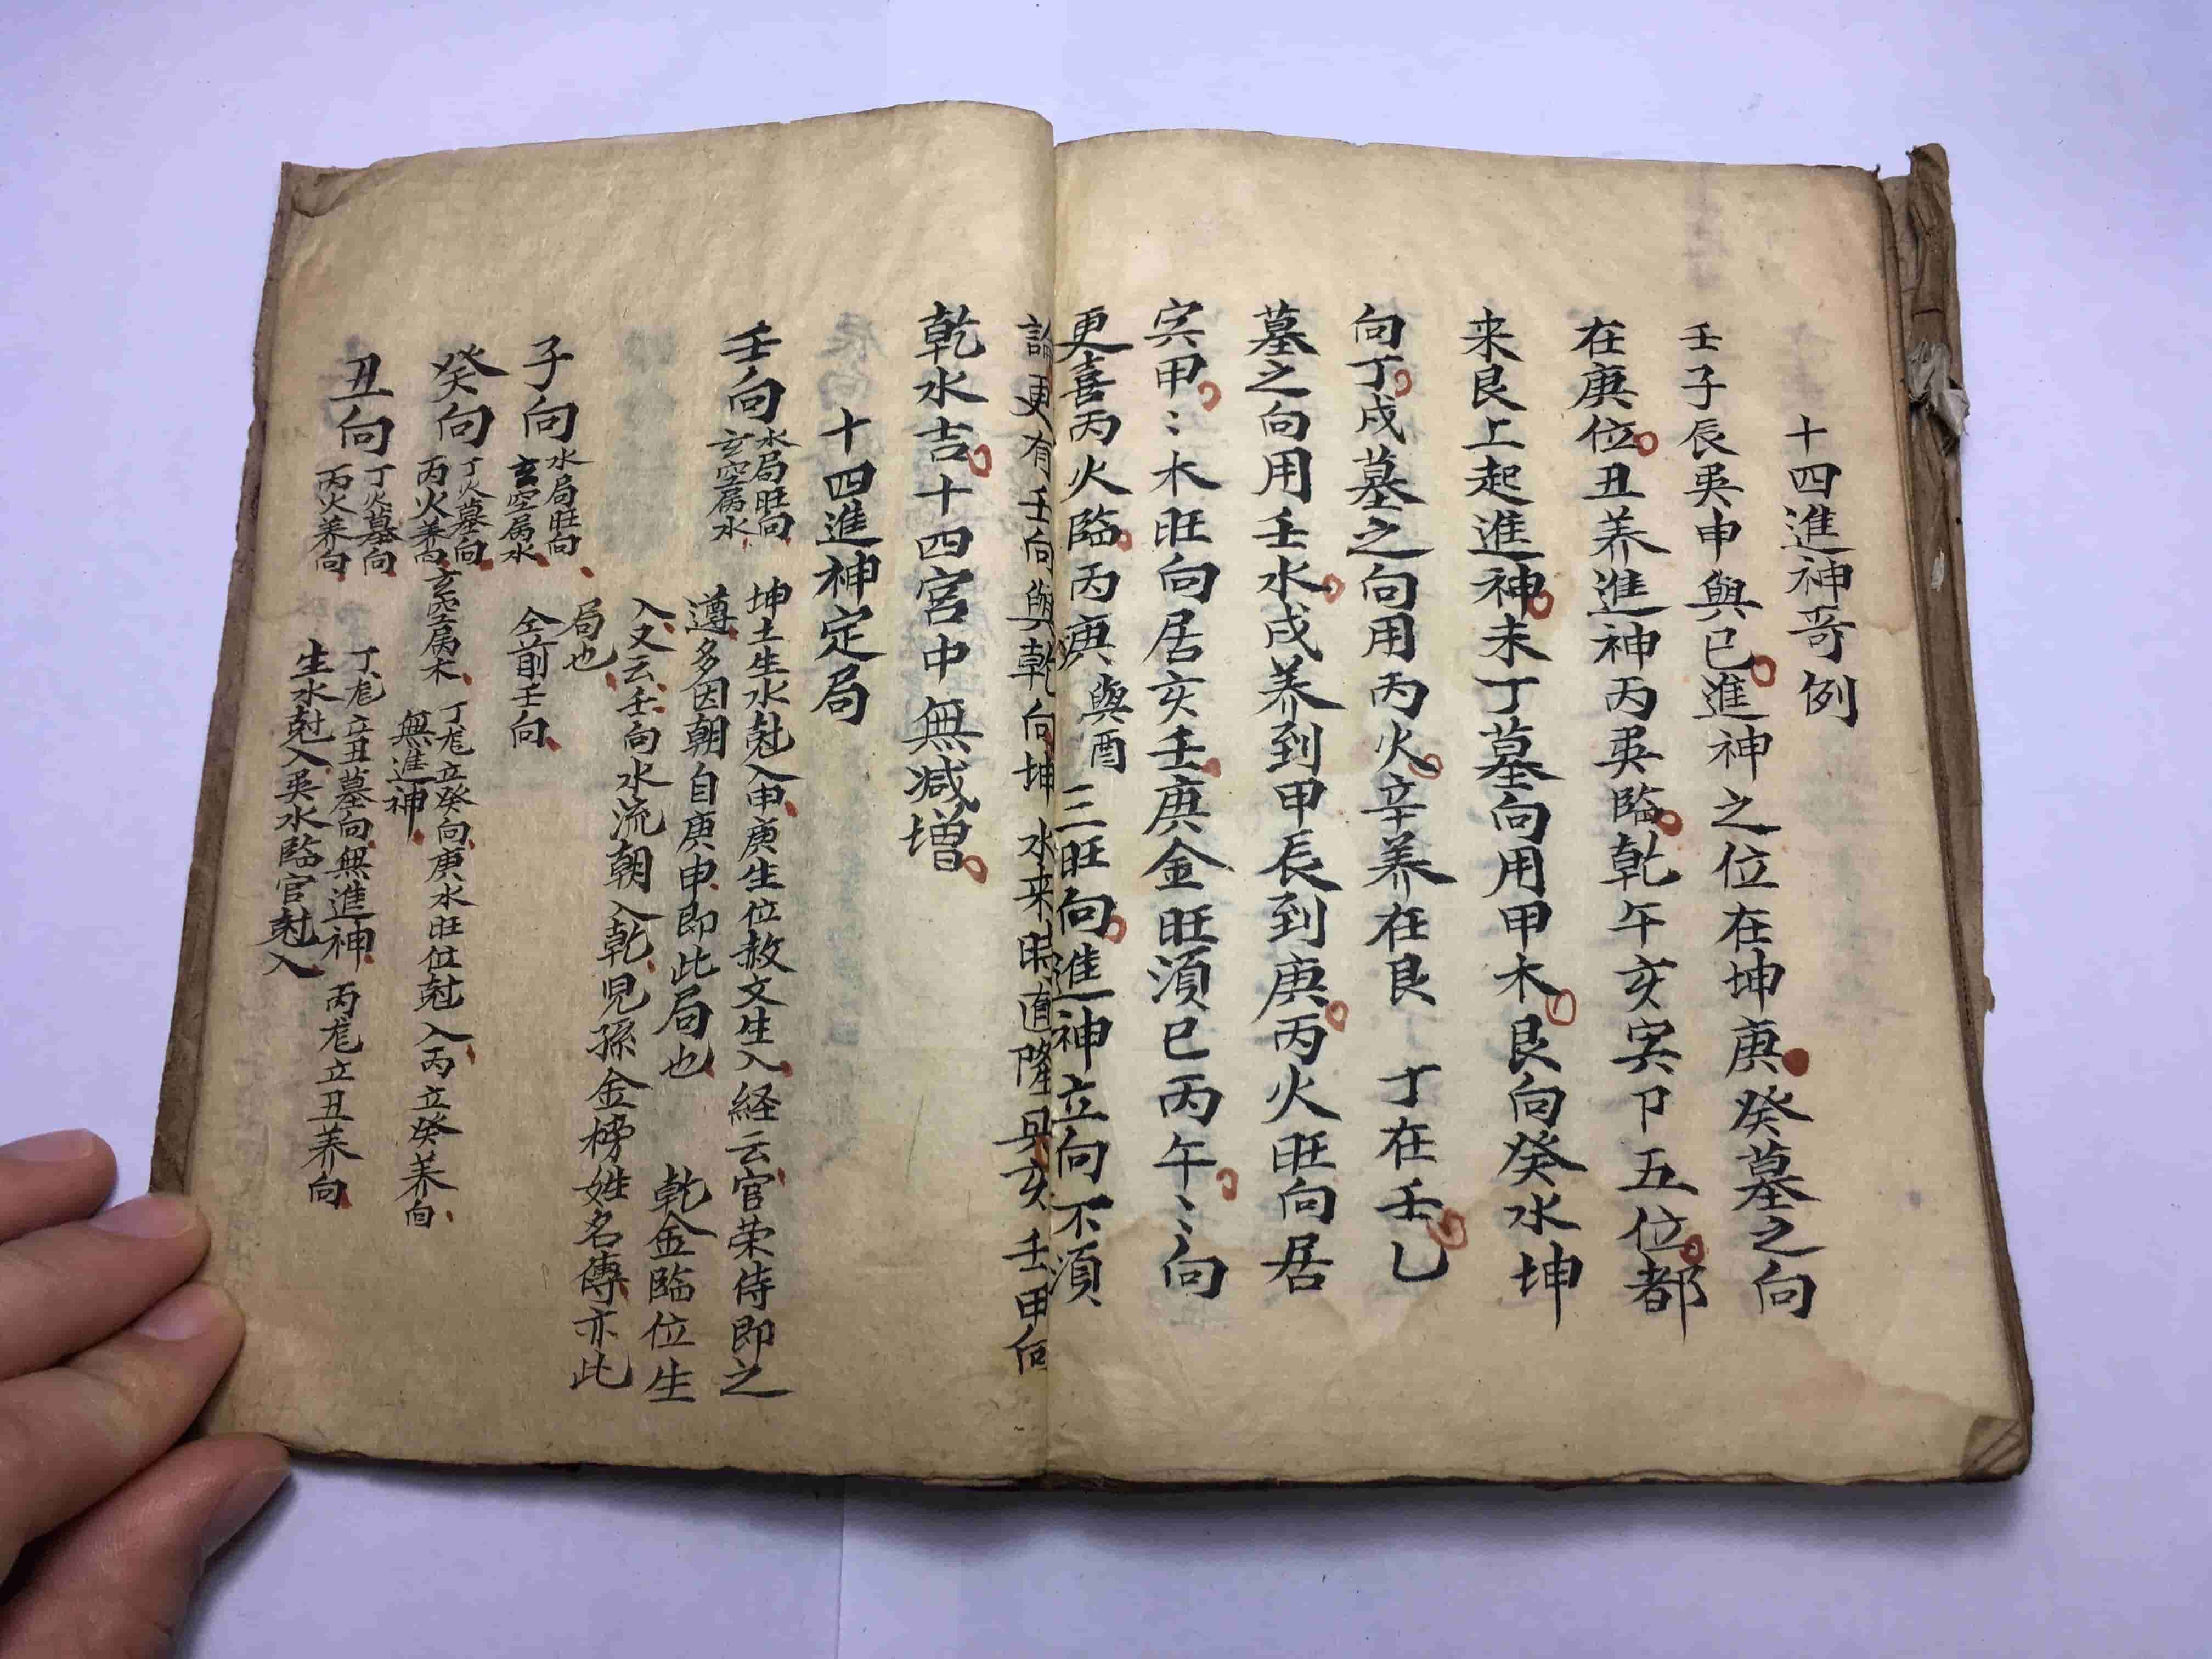 十四進神哥例
壬子辰㢲申與巳進神之位在坤庚癸墓之向
在庚位丑养進神丙㢲臨乾午亥寅卩五位都
来艮上起進神未丁墓向用甲木艮向癸水坤
向丁戌墓之向用丙火辛养在艮丁在壬乙
墓之向用壬水戌养到甲辰到庚丙火旺向居
寅甲〻木旺向居亥壬庚金旺須巳丙午〻〻向
更喜丙火臨丙庚與酉三旺向進神立向不須
論更有壬向與乾向坤水来時直隆具亥壬甲向
乾水吉十四宮中無减增
十四進神定局
壬向水局旺向
玄空属水
坤土生水尅入申庚生位赦文生入経云官荣侍即之
遵多因朝自庚申即此局也 乾金臨位生
入又云壬向水流朝入乾児孫金榜姓名傳亦此
局也
子向水局旺向
玄空属水
仝前壬向
癸向丁火墓向
丙火养向
玄空属木
丁龙立癸向庚水旺位尅入丙立癸养向
無進神
丑向丁火墓向
丙火养向
丁龙立丑墓向無進神丙龙立丑养向
生水尅入㢲水臨官尅入